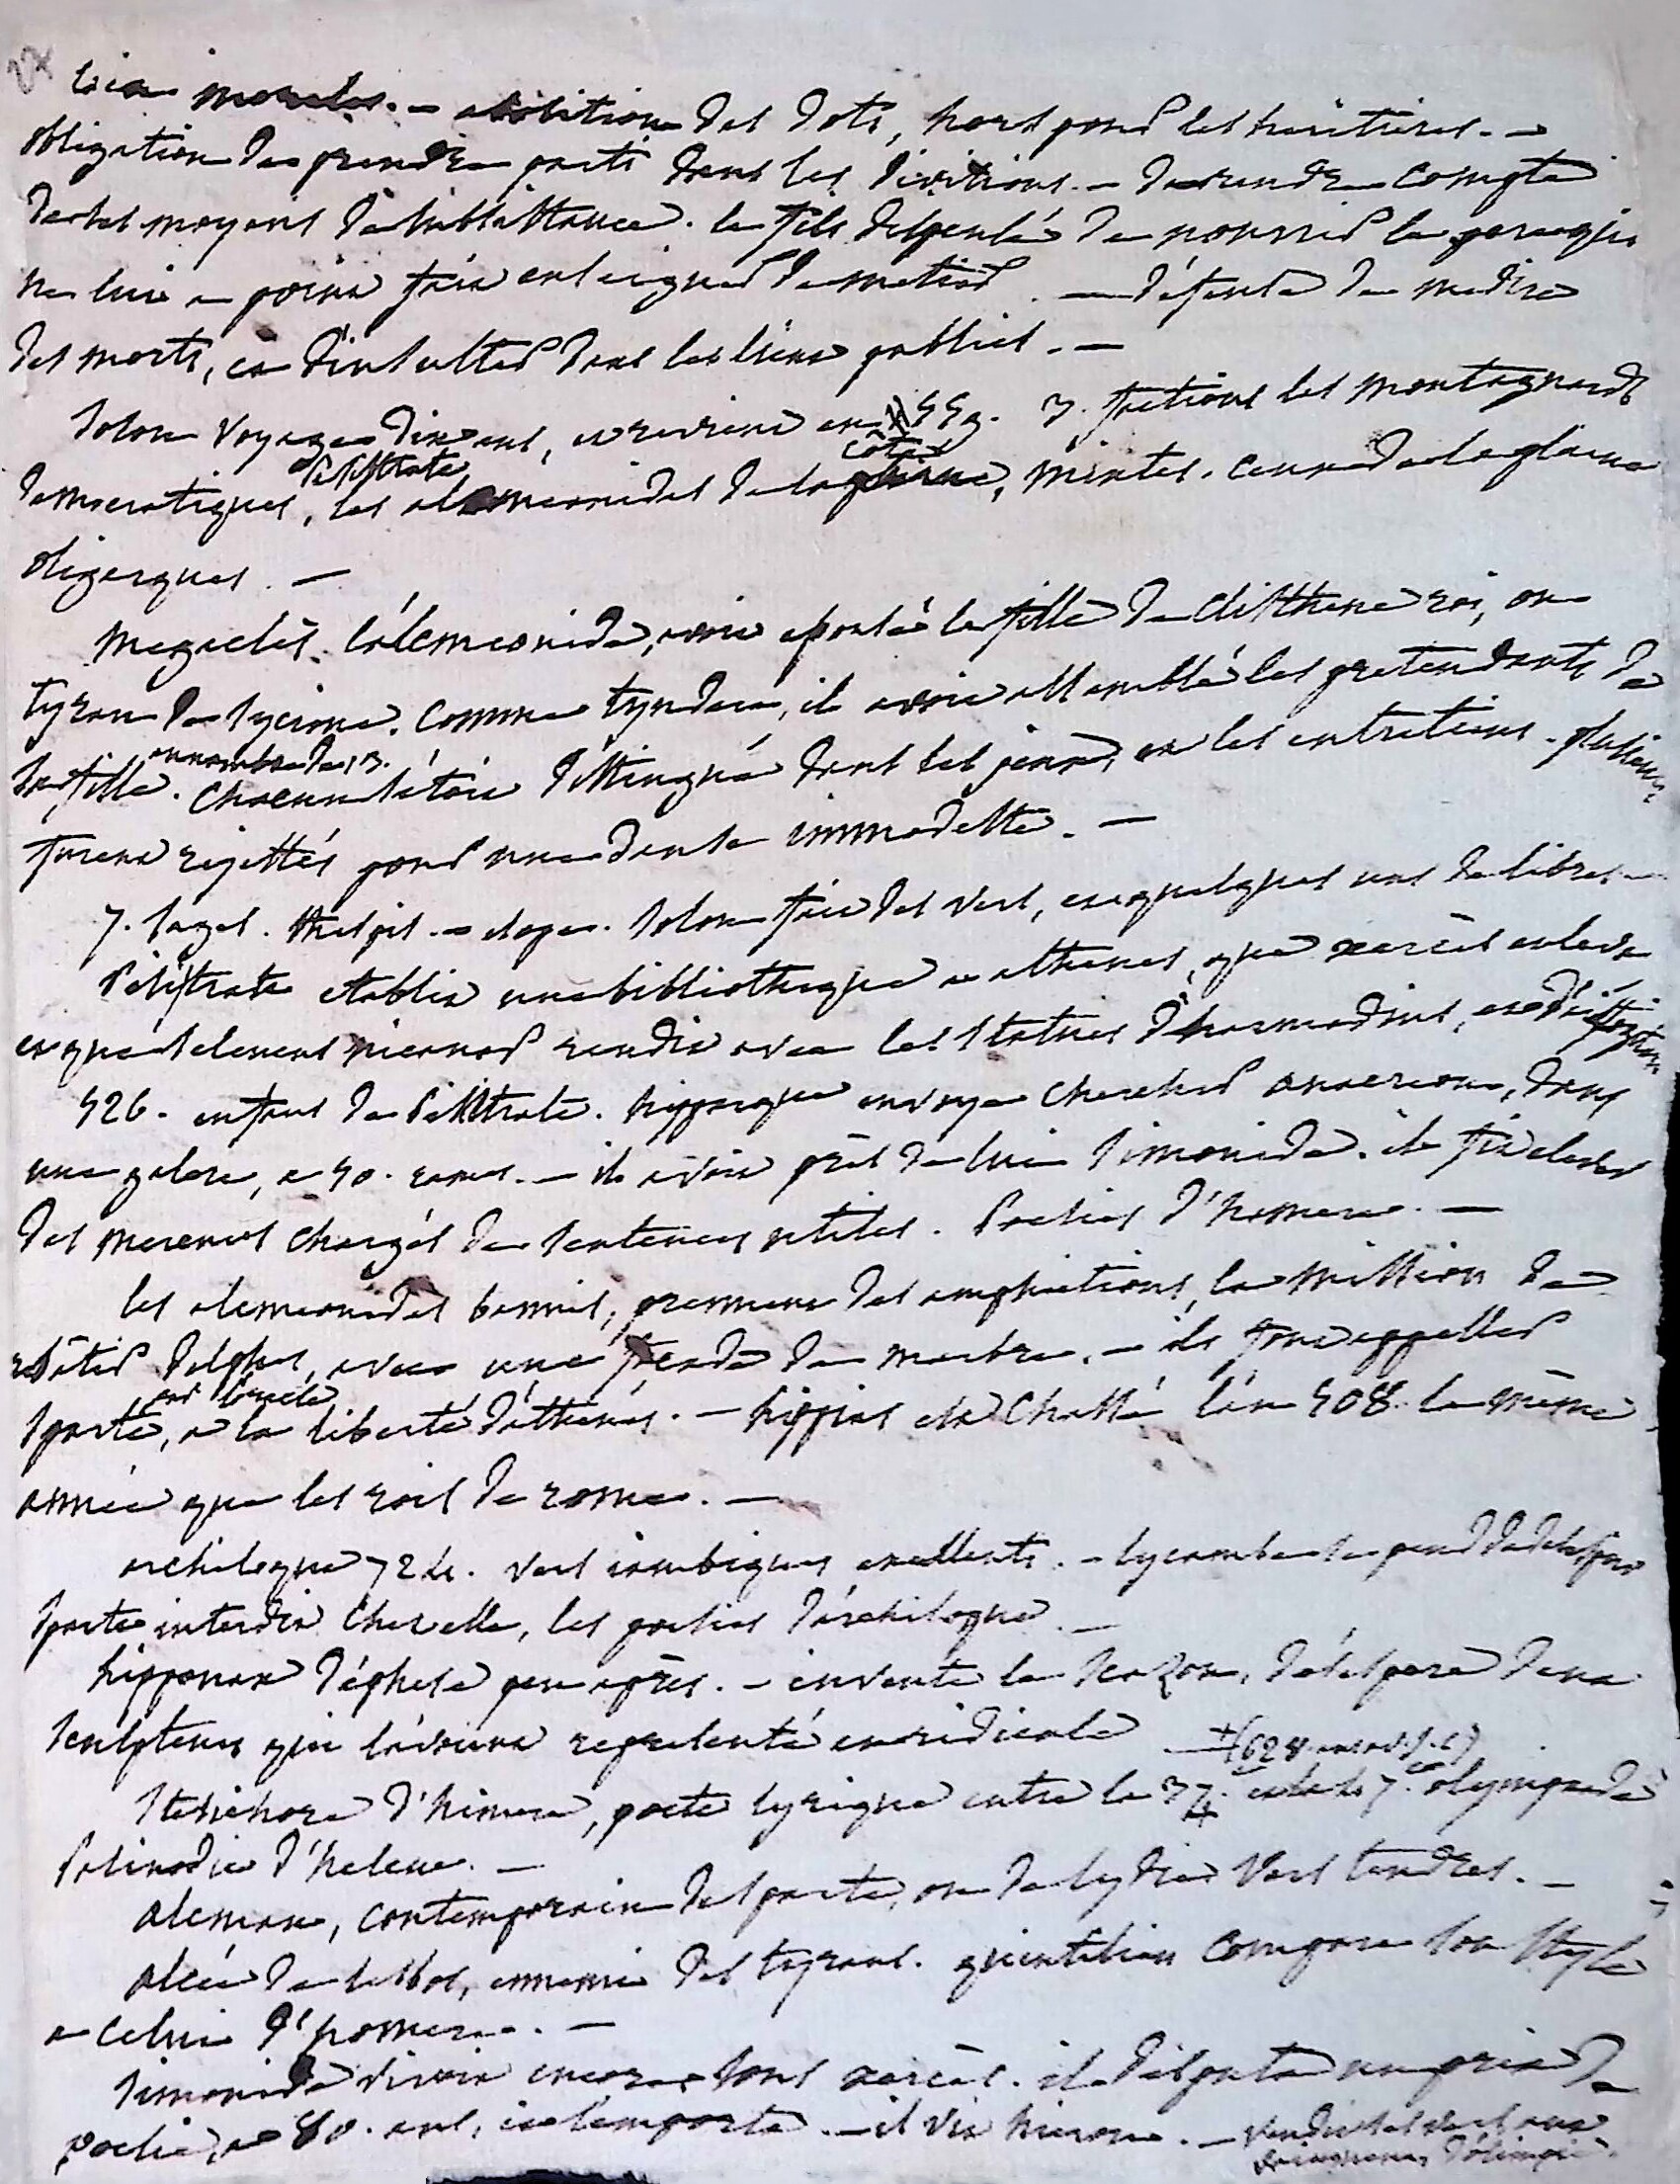 loix morales. — abolition des dots, hors pour les heritieres. —
obligation de prendre parti dans les divisions. — de rendre compte
de ses moyens de subsistance. le fils dispensé de nourrir le pere qui
ne lui a point fait enseigner de metier. — défense de medire
des morts, et d'insulter dans les lieux publics. —
Solon voyage dix ans, et revient en 559. 3. factions les montagnards
democratiques, pisistrate les alcmeonides de la côte, mixtes. ceux de la plaine
oligarques. —
Megaclès l'alcmeonide, avoit epousé la fille de Clisthene roi, ou
tyran de sycione. comme tyndare, il avoit assemblé les pretendants de
sa fille. au nombre de 13. chacun s'étoit distingué dans les jeux, et les entretiens. plusieurs
furent rejettés pour une danse immodeste. —
7. sages. thespis. — esope. Solon fait des vers, et quelques uns de libres —
Pisistrate etablit une bibliotheque a athenes, que xercès enleva
et que seleucus nicanor rendit avec les statues d'harmodius, et d'aristogiton
526. enfans de Pisistrate. hipparque envoya chercher anacreon, dans
une galere, a 50. rames. — il avoit près de lui Simonide. il fit elever
des mercures chargés de sentences utiles. Poesies d'homere. —
les alcmeonides bannis, prennent des amphictions, la mission de
rebâtir Delphes, avec une façade de marbre. — ils font appeller
Sparte, par l'oracle a la liberté d'athenes. — hippias est chassé l'an 508. la même
année que les rois de rome. —
archiloque 724. vers iambiques excellents. — lycambe se pend de desespoir
Sparte interdit chez elle, les poesies d'archiloque. —
hipponax d'éphese peu après. — invente le scazon, désespere deux
sculpteurs qui l'avoient representé en ridicule —
Stesichore d'himere, poete lyrique entre la 37. et la 47. olympiade (628. ans av. J. C)
Palinodie d'helene. —
alcman, contemporain de sparte, ou de lydie vers tendres. —
alcée de lesbos, ennemi des tyrans. quintilien compare son style
a celui d'homere. —
Simonide vivoit encore sous xercès. il disputa un prix de
poesie, a 80. ans, et l'emporta. — il vit hieron. — vendit ses vers aux
vainqueurs d'olimpie.